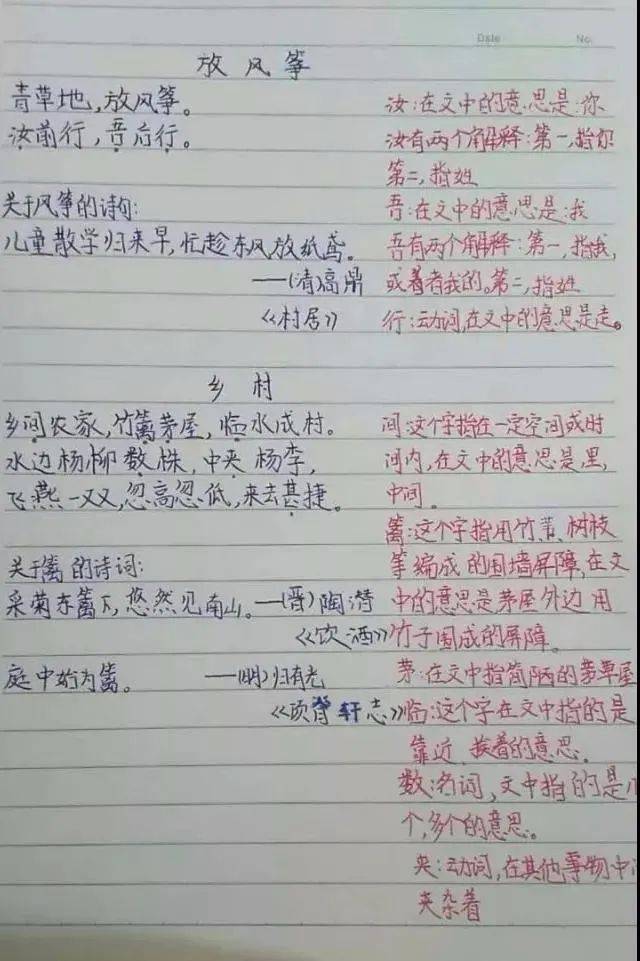 Date No.
放风筝
青草地，放风筝。
汝前行，吾后行。
关于风筝的诗句:
儿童散学归来早，忙趁东风放纸鸢。
——(清)高鼎
《村居》
汝:在文中的意思是:你
汝有两个解释:第一,指你
第二,指姓
吾:在文中的意思是:我
吾有两个解释:第一,指我,
或着者我的。第二,指姓
行:动词,在文中的意思是走。
乡村
乡间农家，竹篱茅屋，临水成村。
水边杨柳数株，中夹杨李，
飞燕一双,忽高忽低，来去甚捷。
关于篱的诗词:
采菊东篱下，悠然见南山。——(晋)陶潜
《饮酒》
庭中始为篱。 ——(明)归有光
《项脊轩志》
间:这个字指在一定空间或时
间内,在文中的意思是:里,
中间.
篱:这个字指用竹、苇、树枝
等编成的围墙屏障,在文
中的意思是茅屋外边用
竹子围成的屏障.
茅:在文中指简陋的茅草屋
临:这个字在文中指的是
靠近、挨着的意思.
数:名词,文中指的是几
个,多个的意思。
夹:动词,在其他事物中
夹杂着